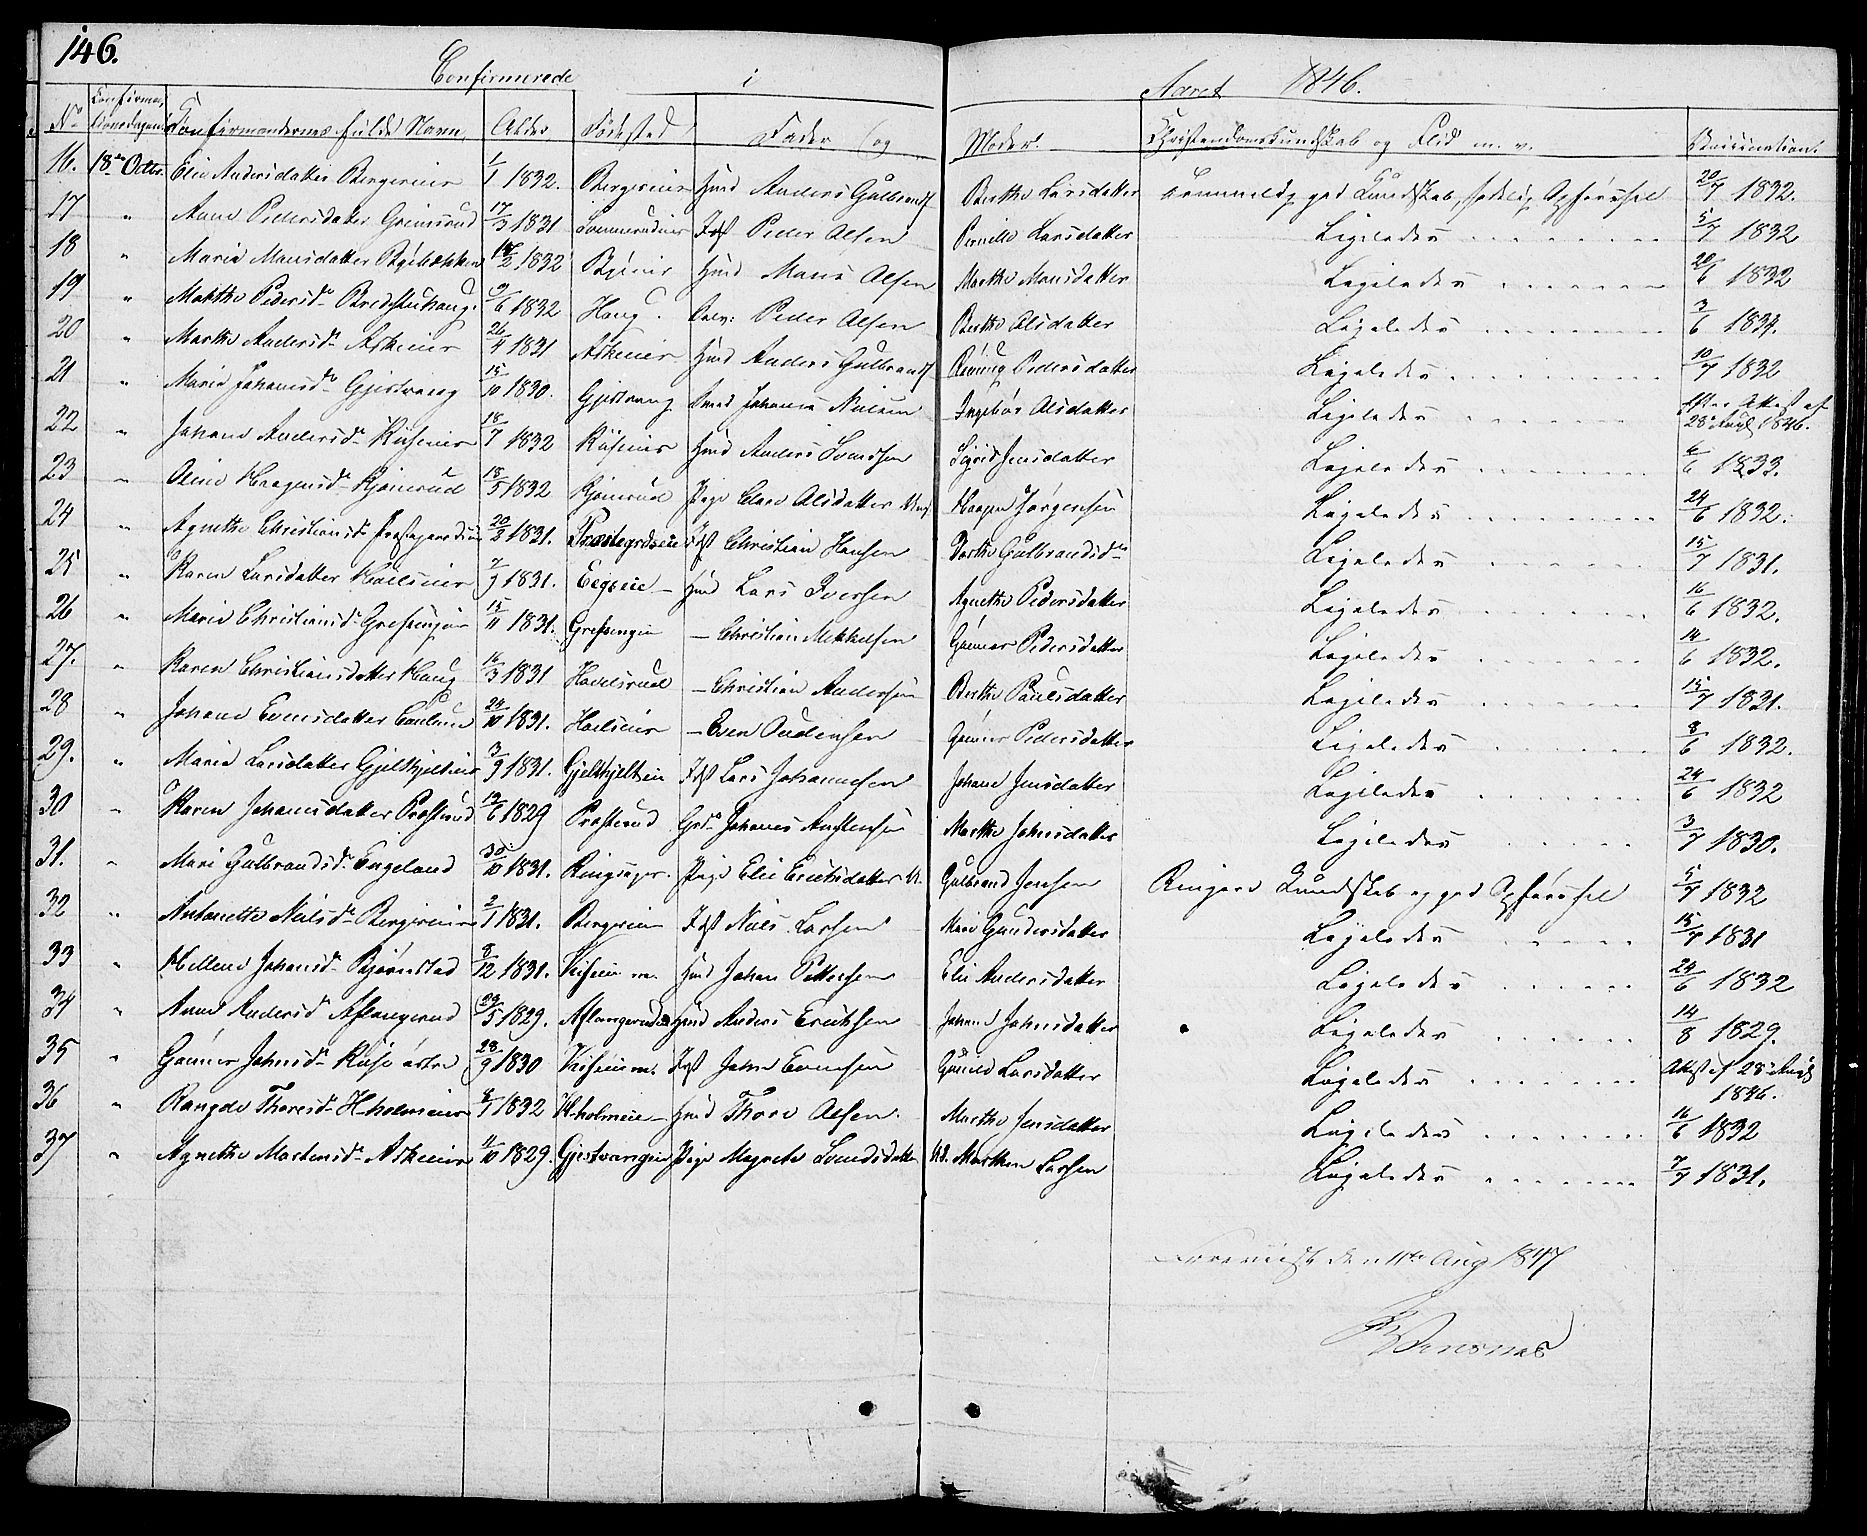 146.
Confirmerede i Aaret 1846.
No Confirmations Dagen Confirmandernes fulde Navn Alder Fødested Fader og Moder Christendomskundskab og Flid m. v. Vaccination
16. 18de Octbr. Elie Andersdatter Bergereier 1/1 1832. Bergereier Hmd Anders Gulbrands. Berthe Larsdatter temmelig god Kundskab, sædelig Opførsel 20/7 1832.
17 " Anne Pedersdatter Grimsrud 17/3 1831 Peder Olsen Pernille Larsdatter Ligeledes 5/7 1832
18 " Marie Mansdatter 1832 Hmd Mans Olsen Marthe Mansdatter Ligeledes 20/6 1832
19 " Marthe Pedersdr 9/6 1832 Haug. Peder Olsen Berthe Olsdatter Ligeledes 3/6 1834.
20 " Marthe Andersdr Askeeier 26/4 1831 Askeeier Hmd Anders Gulbrands. Pedersdatter Ligeledes 10/7 1832
21 " Marie Johansdr Gjestvang 15/10 1830. Gjestvang Johannes Nielsen Ingebor Olsdatter Ligeledes Efter Attest af 28de Aug 1846.
22 " Johane Andersdr Kiseeier 18/7 1832 Kiseeier Hmd Anders Svendsen Sigrid Jensdatter Ligeledes 6/6 1833.
23 " Oline Haagensdr Kjønerud 18/5 1832 Kjønerud Pige Olsdatter Haagen Jørgensen Ligeledes 24/6 1832.
24 " Agnethe Christiansdr Præstegaardseie 20/2 1831. Præstegrdseie Ist Christian Hansen Dorthe Gulbrandsdr Ligeledes 15/7 1831.
25 " Karen Larsdatter 7/9 1831. Eegseie Hmd Lars Iversen Agnethe Pedersdatter Ligeledes 16/6 1832.
26 " Marie Christiansdr 15/11 1831. – Christian Mikkelsen Gunner Pedersdatter Ligeledes 14/6 1832.
27. " Karen Christiansdatter Haug 16/3 1831 Havelsrud – Christian Andersen Berthe Paulsdatter Ligeledes 15/7 1831.
28 " Johane Evensdatter 24/10 1831. – Even Gunner Pedersdatter Ligeledes 8/6 1832.
29. " Marie Larsdatter 3/9 1831. Ist Lars Johannesen Johane Jensdatter Ligeledes 24/6 1832
30 " Karen Johansdatter Prøstrud 12/6 1829 Prøstrud Grdm Johanes Austensen Marthe Johnsdatter Ligeledes 3/7 1830.
31. " Mari Gulbrandsdr Engeland 30/10 1831. Ringsager. Pige Elie Eriksdatter U. Gulbrand Jensen Ringere Kundskab og god Opførsel 5/7 1832
32 " Antonette Nielsdr Bergereier 2/1 1831. Bergereier Ist Niels Larsen Mari Gundersdatter Ligeledes 15/7 1831
33 " Hellene Johansdr Bjørnstad 8/12 1831. Hmd Johan Pettersen Elie Andersdatter Ligeledes 24/6 1832
34 " Anne Andersdr Aflangerud 29/5 1829. Aflangerudeie Hmd Anders Eriksen Johane Johnsdatter Ligeledes 14/8 1829.
35 " Gunner Johnsdr Kise østre 28/9 1830 Ist John Evensen Gunild Larsdatter Ligeledes Attest af 28de Aug 1846.
36 " Rangde Thoresdr H.holmeier 8/1 1832 H.holmeie – Hmd Thore Olsen. Marthe Jensdatter Ligeledes 16/6 1832
37 " Agnethe Mortensdr Askeeier 11/10 1829. Gjestvangeie Pige Magrete Svendsdatter U.S. Morthen Larsen Ligeledes 7/7 1831.
Foreviist den 11te Aug 1847